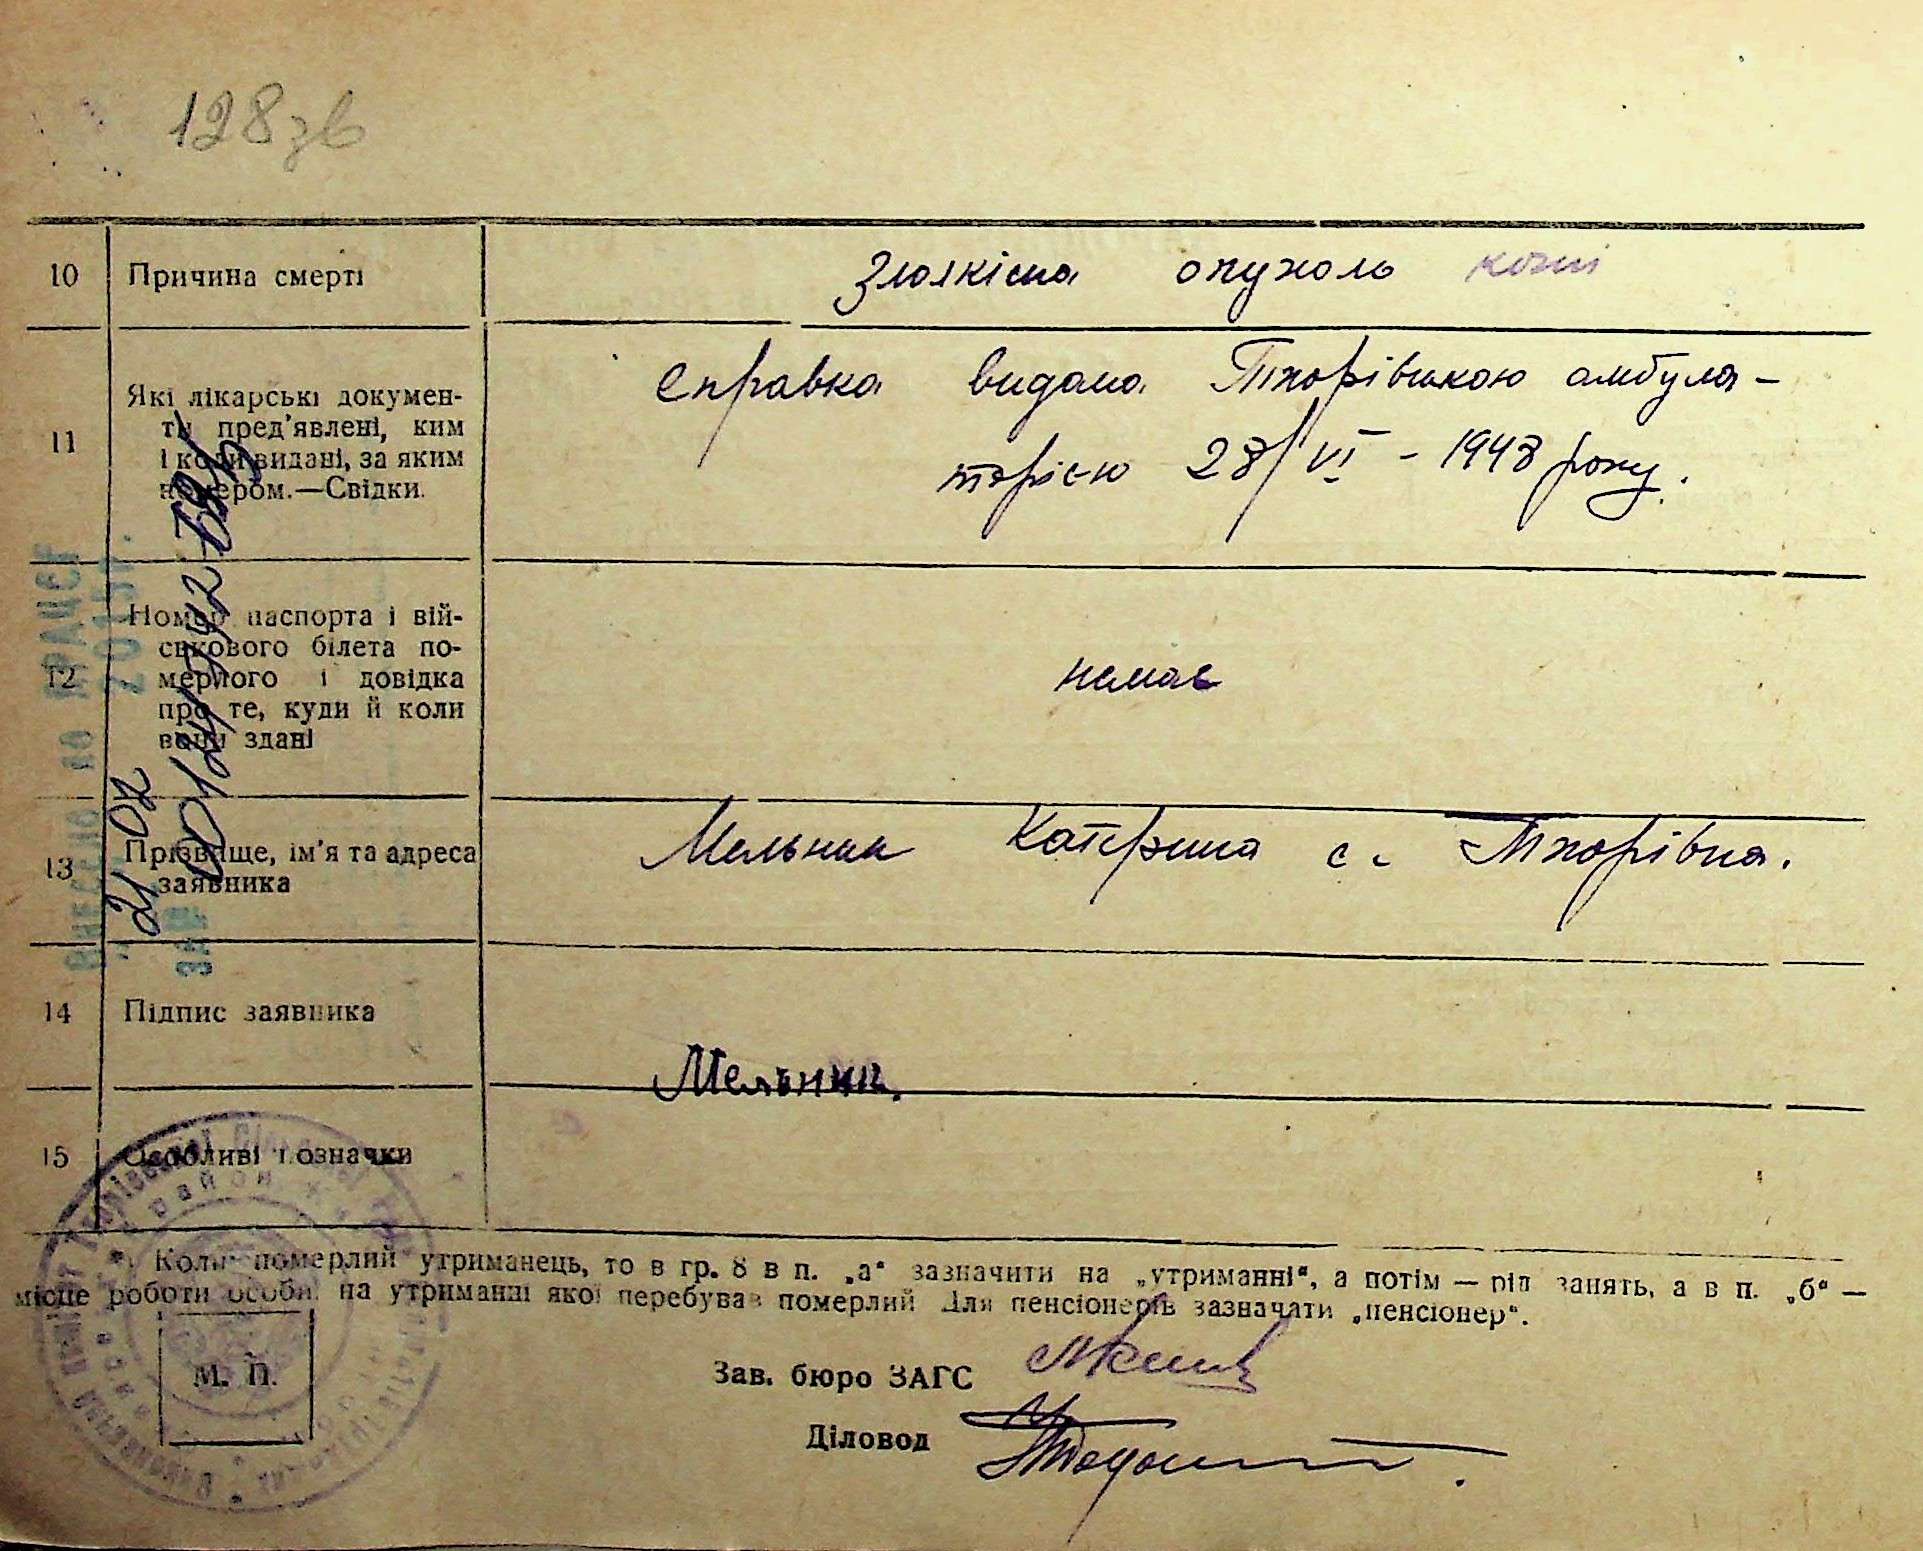 128зв
10 Причина смерті Злоякісна опухоль кожі
11 Які лікарські докумен-
ти пред'явлені, ким
і коли видані, за яким
номером.—Свідки.
Справка видана Тхорівською амбула-
торією 28/VI - 1948 року.
12 Номер паспорта і вій-
ськового білета по-
мерлого і довідка
про те, куди й коли
вони здані
немає
13 Прізвище, ім'я та адреса
заявника
Мельник Катерина с. Тхорівка.
14 Підпис заявника
Мельник.
15 Особливі позначки
Коли померлий утриманець, то в гр. 8 в п. „а“ зазначити на „утриманні“, а потім — рід занять, а в п. „б“ —
місце роботи особи на утриманні якої перебував померлий Для пенсіонерів зазначати „пенсіонер“.
Зав. бюро ЗАГС
Діловод
М. П.
ВНЕСЕНО ДО
21 02